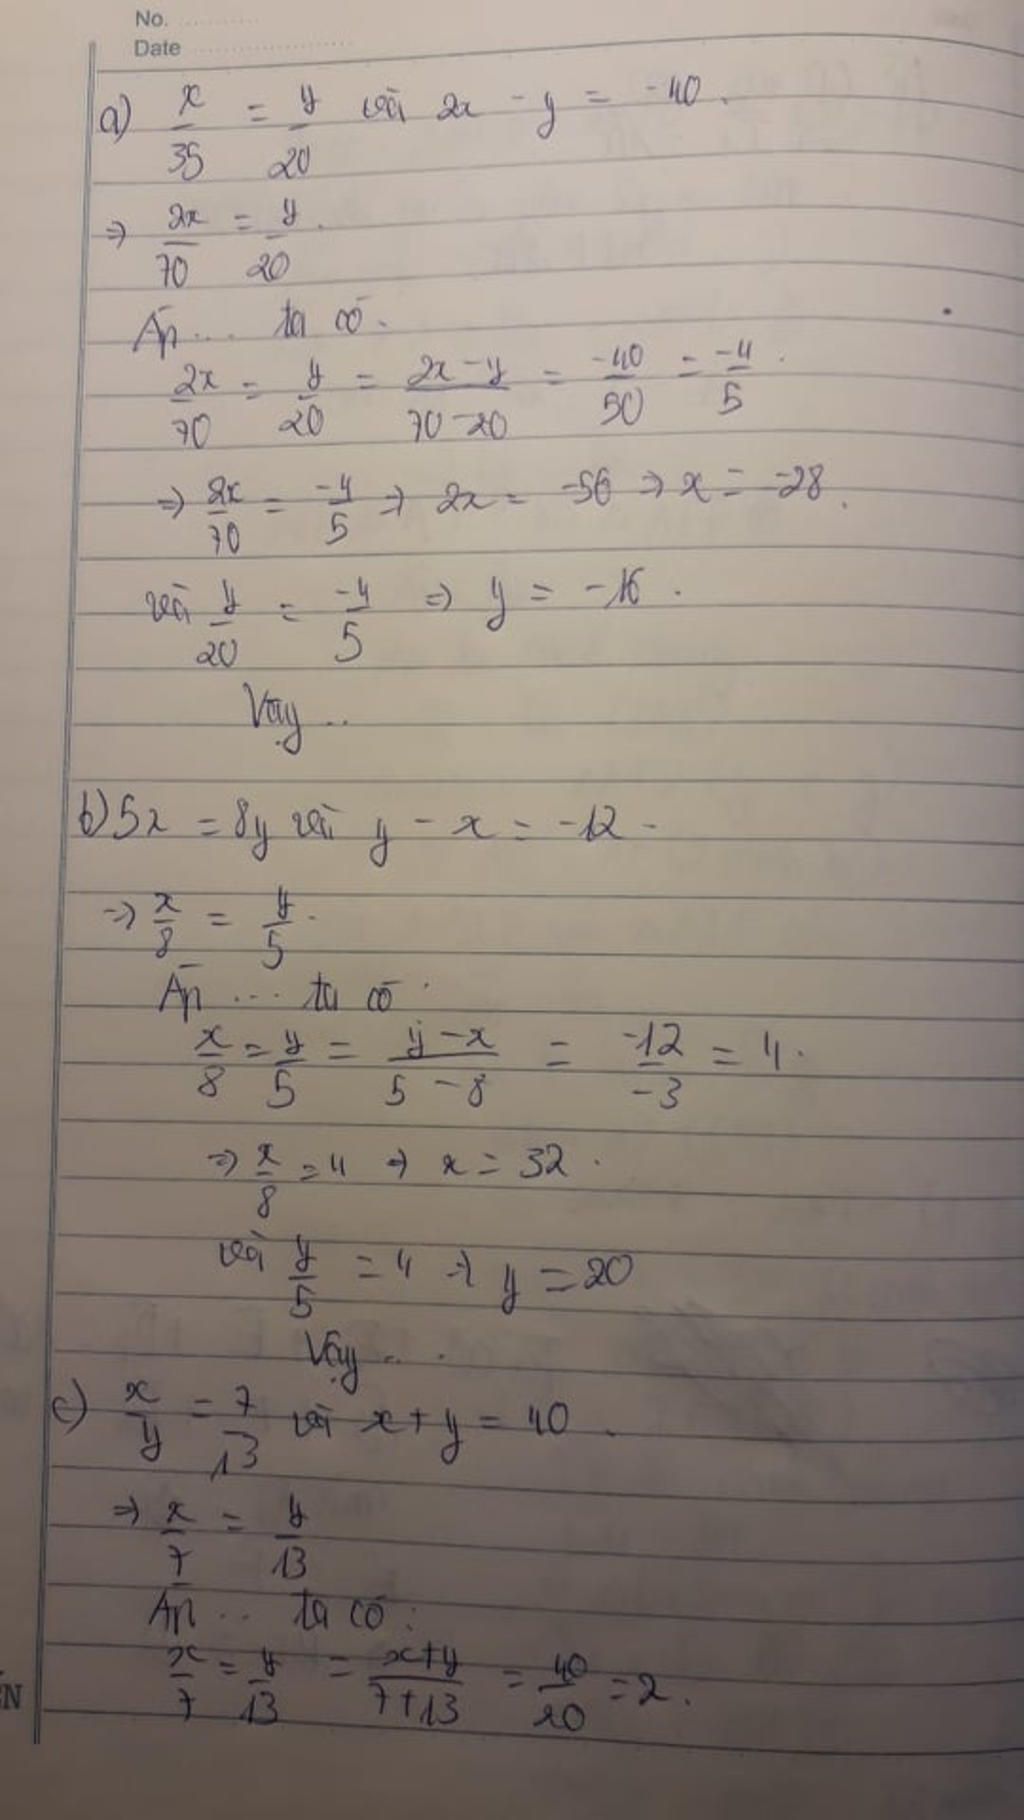 No.
Date
a) x/35 = y/20 và 2x - y = -40.
=> 2x/70 = y/20.
Áp ... ta có.
2x/70 = y/20 = 2x - y/70 - 20 = -40/50 = -4/5.
=> 2x/70 = -4/5 => 2x = -56 => x = -28.
và y/20 = -4/5 => y = -16.
Vậy ..
b) 5x = 8y và y - x = -12 -
=> x/8 = y/5.
Áp ... ta có.
x/8 = y/5 = y - x/5 - 8 = -12/-3 = 4.
=> x/8 = 4 => x = 32.
và y/5 = 4 => y = 20
Vậy ...
c) x/y = 7/13 và x + y = 40.
=> x/7 = y/13
Áp ... ta có:
x/7 = y/13 = x+y/7+13 = 40/20 = 2.